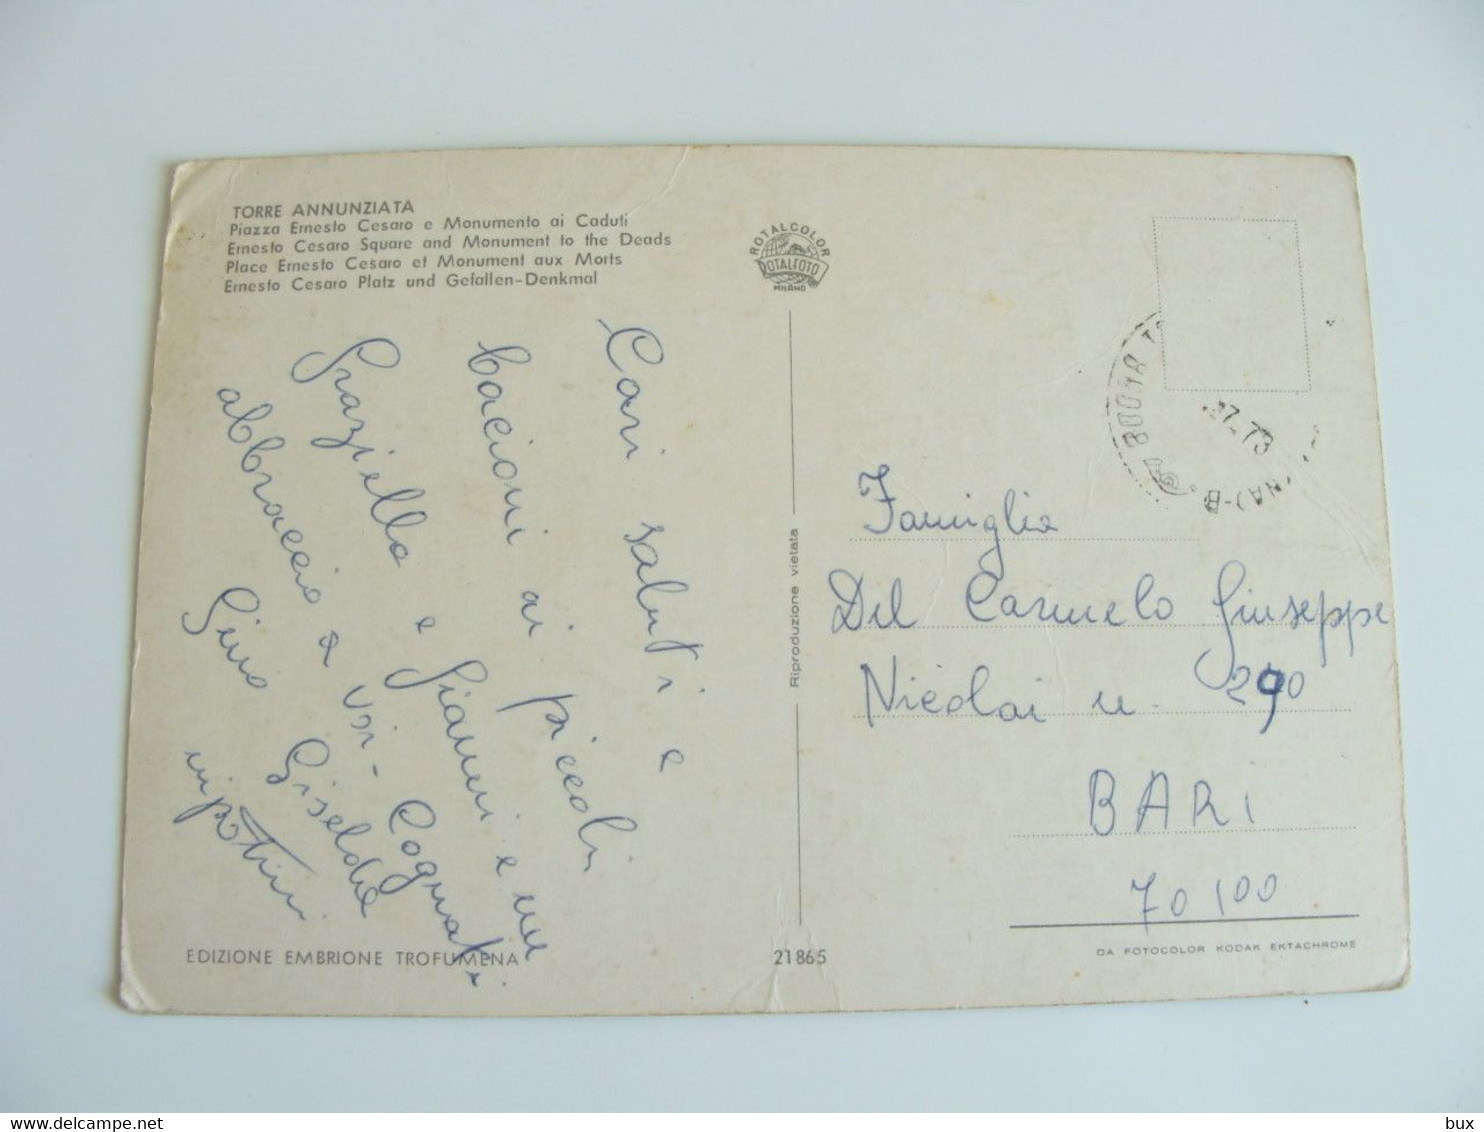 TORRE ANNUNZIATA
Piazza Ernesto Cesaro e Monumento ai Caduti
Ernesto Cesaro Square and Monument to the Deads
Place Ernesto Cesaro et Monument aux Morts
Ernesto Cesaro Platz und Gefallen-Denkmal
ROTALCOLOR
ROTALFOTO
MILANO
Cari saluti e
bacioni ai piccoli
Graziella e Gianni e un
abbraccio a voi - Cognati
Gino Giselda
nipotini
80048
7-73
(NA)-B
Famiglia
Del Carmelo Giuseppe
Nicolai n. 290
BARI
70100
Riproduzione vietata
EDIZIONE EMBRIONE TROFUMENA
21865
DA FOTOCOLOR KODAK EKTACHROME
bux